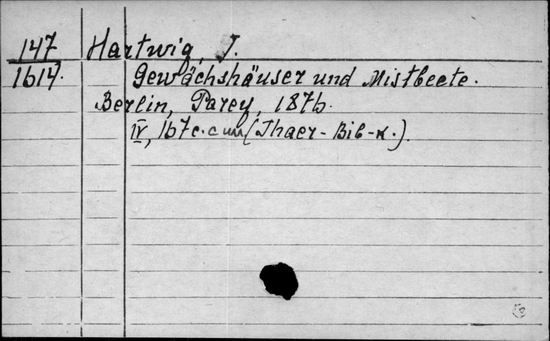 147 Hartwig, J.
1614. Gewächshäuser und Mistbeete.
Berlin, Parey, 1876.
IV, 167 c. с илл (Thaer-Bib-к.).